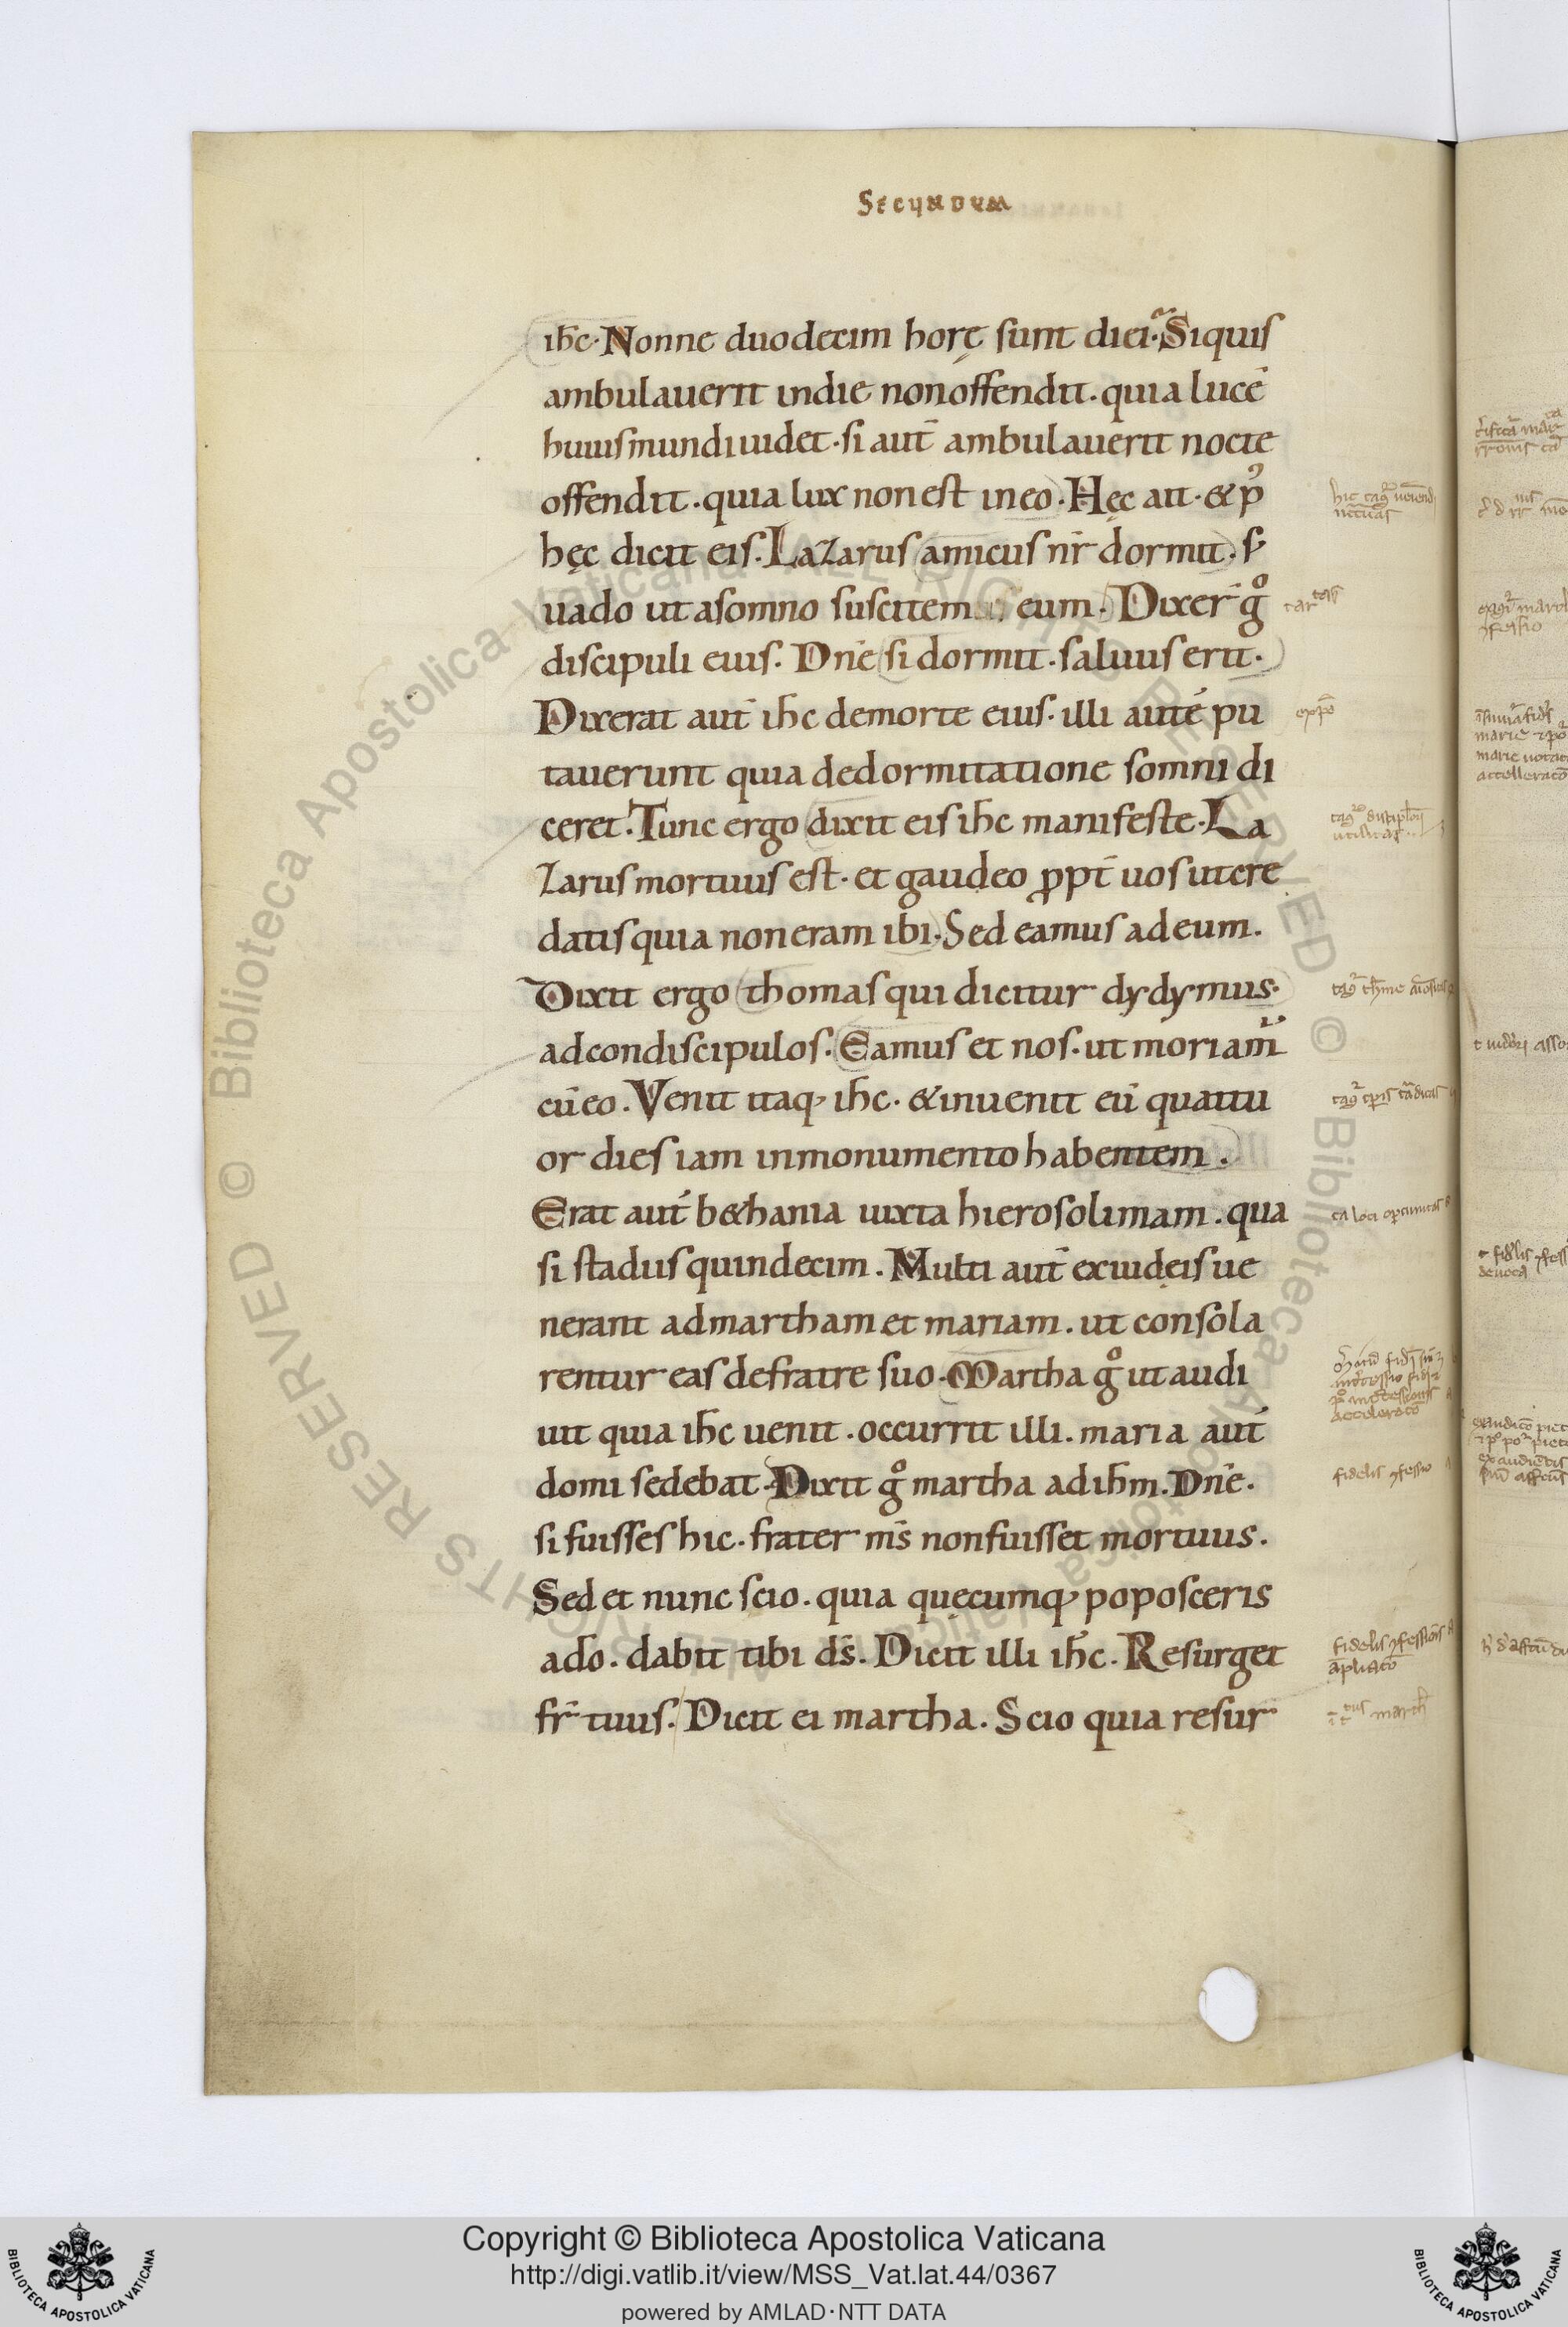 Secundum
ihc. Nonne duodecim horę sunt diei. Siquis
ambulauerit indie nonoffendit. quia lucē
huiusmundi uidet. si aut̄ ambulauerit nocte
offendit. quia lux nonest ineo. Hęc ait. & p̓
hęc dicit eis. Lazarus amicus nr̄ dormit. s;
uado ut asomno suscitem eum. Dixer̄ gͦ
discipuli eius. Dn̄e si dormit. saluus erit.
Dixerat aut̄ ihc demorte eius. illi autē pu
tauerunt quia dedormitatione somni di
ceret. Tunc ergo dixit eis ihc manifeste. La
zarus mortuus est. et gaudeo ꝓpt̄ uos utcre
datis quia noneram ibi. Sed eamus adeum.
Dixit ergo thomas qui dicitur dydymus.
adcondiscipulos. Eamus et nos. ut moriam̄
cū eo. Venit itaq; ihc. & inuenit eū quattu
or dies iam inmonumento habentem.
Erat aut̄ b&hania iuxta hierosolimam. qua
si stadiis quindecim. Multi aut̄ exiudęis ue
nerant admartham et mariam. ut consola
rentur eas defratre suo. Martha gͦ ut audi
uit quia ihc uenit. occurrit illi. maria aut̄
domi sedebat. Dixit gͦ martha adihm. Dn̄e.
si fuisses hic. frater ms̄ nonfuisset mortuus.
Sed et nunc scio. quia quęcumq; poposceris
ado. dabit tibi ds̄. Dicit illi ihc. Resurget
fr̄ tuus. Dicit ei martha. Scio quia resur
fidelis
© Biblioteca Apostolica Vaticana ALL RIGHTS RESERVED © Biblioteca Apostolica Vaticana ALL RIGHTS RESERVED
Copyright © Biblioteca Apostolica Vaticana
http://digi.vatlib.it/view/MSS_Vat.lat.44/0367
powered by AMLAD·NTT DATA
BIBLIOTECA APOSTOLICA VATICANA
BIBLIOTECA APOSTOLICA VATICANA